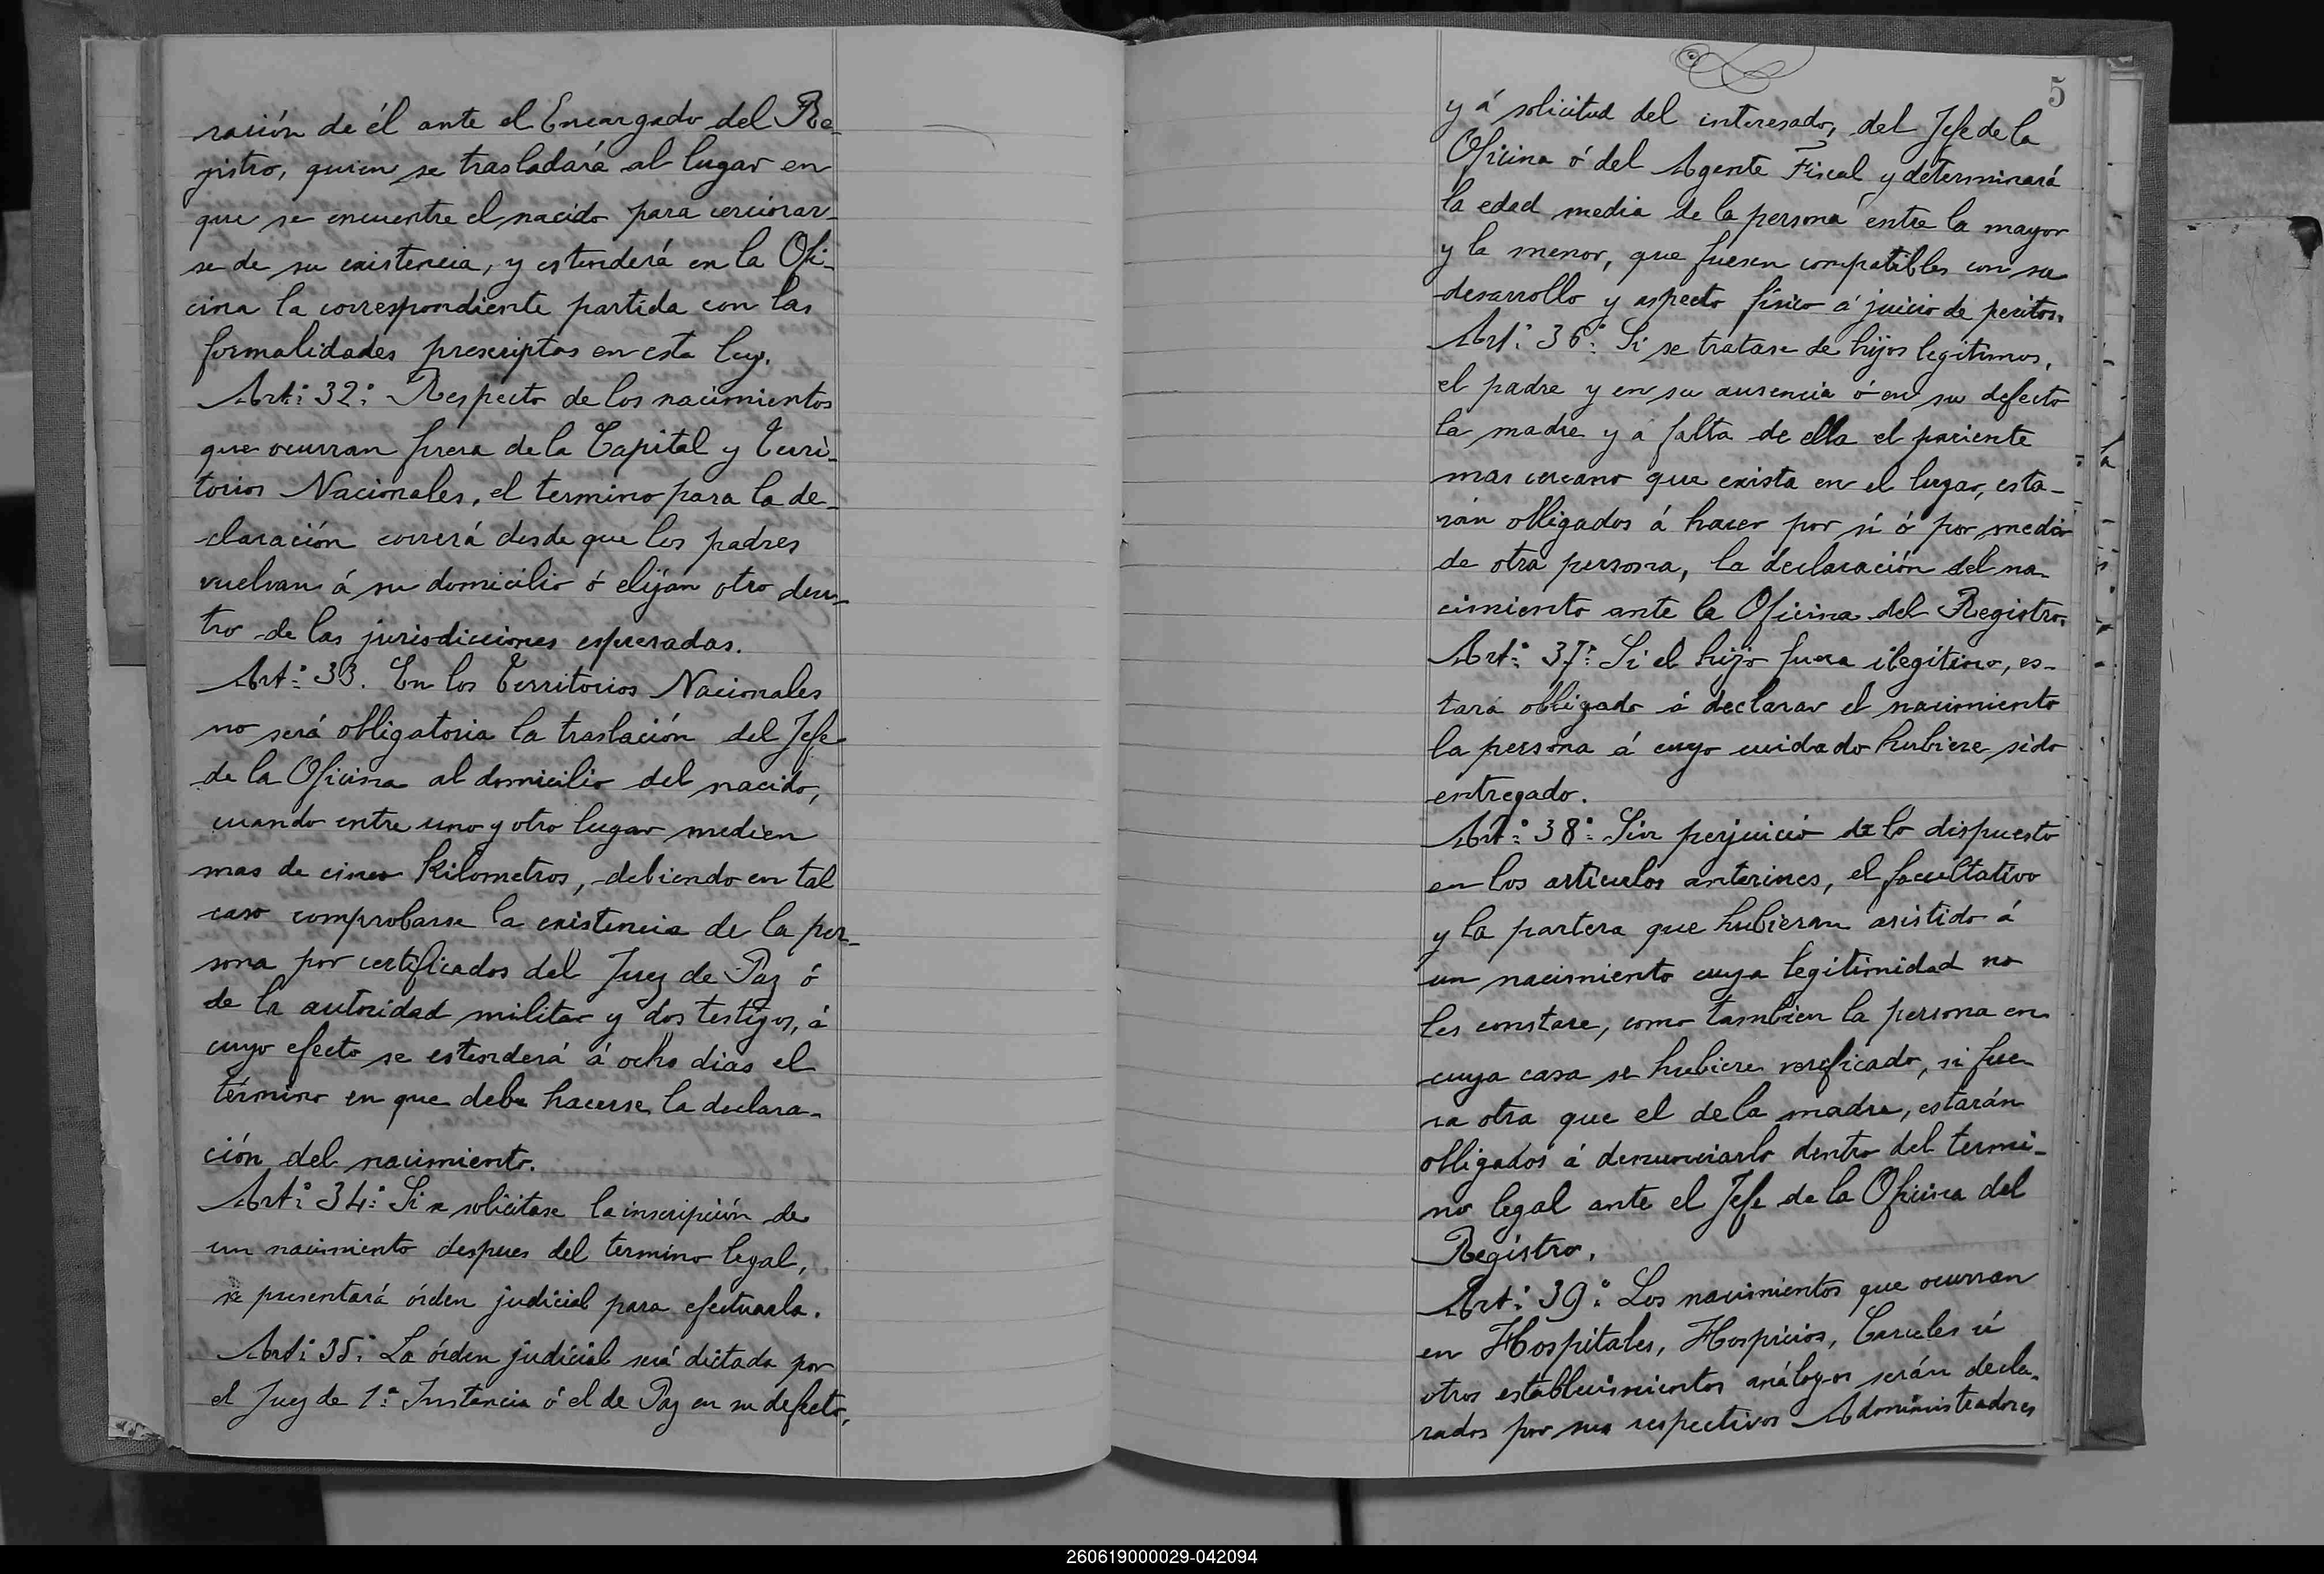 ración de él ante el Encargado del Re-
gistro, quien se trasladará al lugar en
que se encuentre el nacido para cerciorar-
se de su existencia, y estenderá en la Ofi-
cina la correspondiente partida con las
formalidades prescriptas en esta ley.
Art: 32: Respecto de los nacimientos
que ocurran fuera de la Capital y Terri-
torios Nacionales, el termino para la de-
claración correrá desde que los padres
vuelvan á su domicilio ó elijan otro den-
tro de las jurisdicciones espresadas.
Art: 33. En los Territorios Nacionales
no será obligatoria la traslación del Jefe
de la Oficina al domicilio del nacido,
cuando entre uno y otro lugar medien
mas de cinco Kilometros, debiendo en tal
caso comprobarse la existencia de la per-
sona por certificados del Juez de Paz ó
de la autoridad militar y dos testigos, á
cuyo efecto se estenderá á ocho dias el
término en que debe hacerse la declara-
ción del nacimiento.
Art: 34: Si se solicitase la inscripción de
un nacimiento despues del termino legal,
se presentará órden judicial para efectuarla.
Art: 35: La órden judicial será dictada por
el Juez de 1ª Instancia ó el de Paz en su defecto,
5
y á solicitud del interesado, del Jefe de la
Oficina ó del Agente Fiscal y determinará
la edad media de la persona entre la mayor
y la menor, que fuesen compatibles con su
desarrollo y aspecto físico á juicio de peritos.
Art: 36: Si se tratase de hijos legitimos,
el padre y en su ausencia ó en su defecto
la madre y á falta de ella el pariente
mas cercano que exista en el lugar, esta-
rán obligados á hacer por sí ó por medio
de otra persona, la declaración del na-
cimiento ante la Oficina del Registro.
Art: 37: Si el hijo fuera ilegitimo, es-
tará obligado á declarar el nacimiento
la persona á cuyo cuidado hubiere sido
entregado.
Art: 38: Sin perjuicio de lo dispuesto
en los articulos anteriores, el facultativo
y la partera que hubieran asistido á
un nacimiento cuya legitimidad no
les constare, como tambien la persona en
cuya casa se hubiere verificado, si fue
ra otra que el de la madre, estarán
obligados á denunciarlo dentro del termi-
no legal ante el Jefe de la Oficina del
Registro.
Art: 39: Los nacimientos que ocurran
en Hospitales, Hospicios, Carceles ú
otros establecimientos análogos serán decla-
rados por sus respectivos Administradores
260619000029-042094